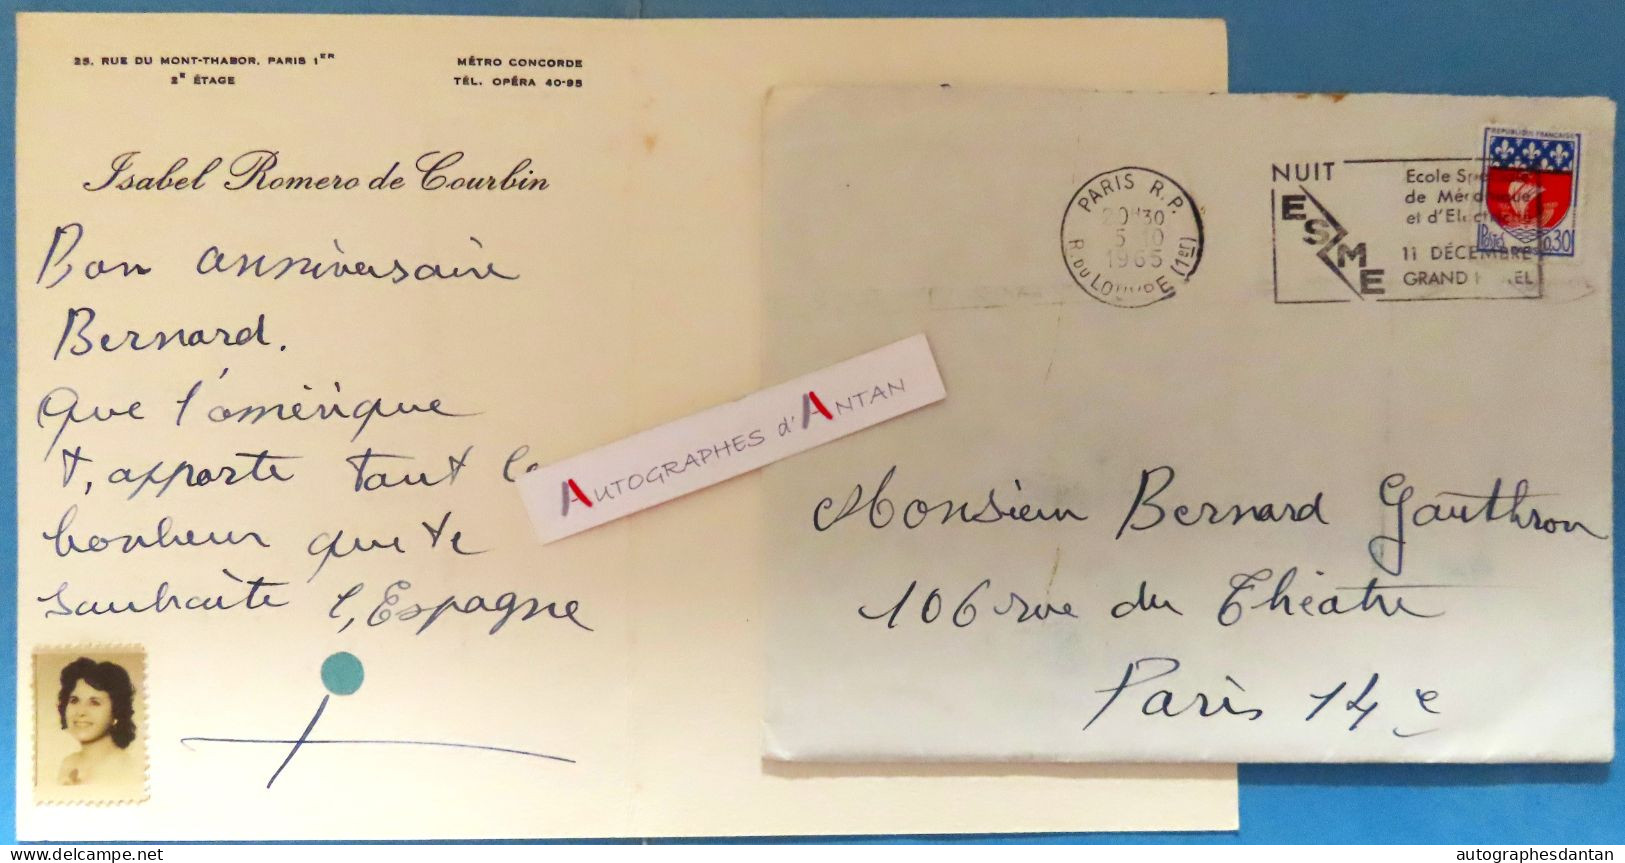 25, RUE DU MONT-THABOR, PARIS 1ER
2E ÉTAGE
MÉTRO CONCORDE
TÉL. OPÉRA 40-95
Isabel Romero de Courbin
Bon anniversaire
Bernard.
Que l'amérique
t, apporte tant
bonheur que te
souhaite l, Espagne
AUTOGRAPHES d'ANTAN
PARIS R.P.
20H30
5-10
1965
R. DU LOUVRE (1er)
NUIT
ESME
Ecole
de
et d'Electricité
11 DÉCEMBRE
GRAND
REPUBLIQUE FRANÇAISE
POSTES 0,30
Monsieur Bernard Gauthron
106 rue du Théatre
Paris 14e
autographesdantan
delcampe.net
autographesdantan